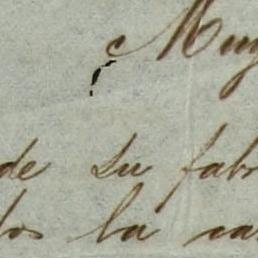 Muy
de su fabr
los la ca